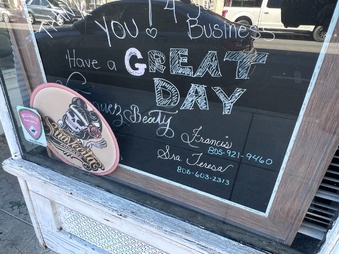 You 4
Business
Have a GREAT
DAY
Beaty
Francis
805-921-9460
Sra Teresa
805-603-2313